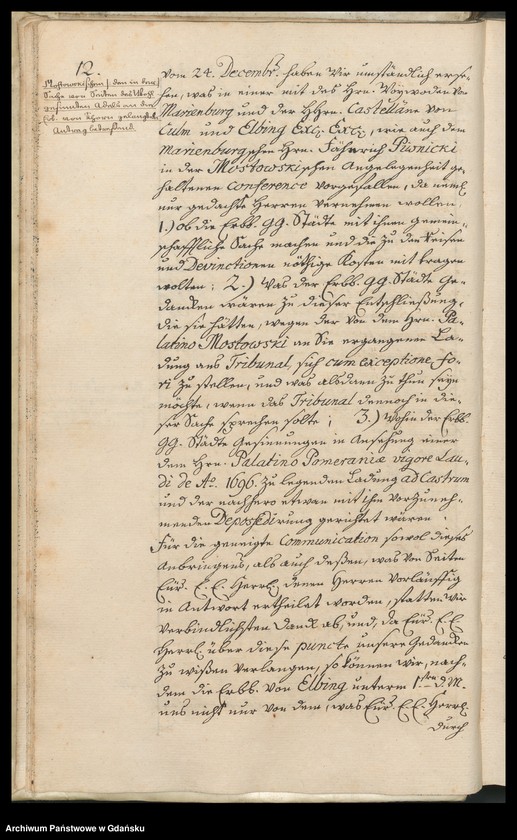 12.
Mostowskischen / den in dem
Sache von Seiten des
gesinnten Adels an die
Erb. von Thorn gelangten
Antrag betreffend.
vom 24. Decembr. haben Wir umständlich erse-
hen, was in einer mit des Hrn. Woywoden von
Marienburg und der HHrn. Castelläne von
Culm und Elbing Exc. Exc., wie auch dem
Marienburgschen Hrn. Fähnrich Piwnicki
in der Mostowskischen Angelegenheit ge-
haltenen Conference vorgefallen, da neml.
nur gedachte Herren vernehmen wollen
1.) ob die Erbb. gg. Städte mit ihnen gemein-
schafftliche Sache machen und die zu den Reisen
und Devinctionen nöthige Kosten mit tragen
wolten; 2.) Was der Erbb. gg. Städte Ge-
dancken wären zu dieser Entschließung,
die sie hätten, wegen der von dem Hrn. Pa-
latino Mostowski an Sie ergangenen La-
dung ans Tribunal, sich cum exceptione fo-
ri zu stellen, und was alsdann zu thun seyn
möchte, wenn das Tribunal dennoch in die-
ser Sache sprechen solte; 3.) Wohin der Erbb.
gg. Städte Gesinnungen in Ansehung einer
dem Hrn. Palatino Pomeraniæ vigore Lau-
di de Ao. 1696. zu legenden Ladung ad Castrum
und der nachhero etwan mit ihm vorzuneh-
menden Deposedirung gerichtet wären.
Für die geneigte Communication sowol dieses
Anbringens, als auch deßen, was von Seiten
Eür. E. E. Herrl. denen Herren vorläuffig
in Antwort ertheilet worden, statten Wir
verbindlichsten Danck ab, und, da Eür. E. E.
Herrl. über diese puncte unsere Gedancken
zu wißen verlangen, so können wir, nach-
dem die Erbb. von Elbing unterm 1sten d. M.
uns nicht nur von dem, was Eür. E. E. Herrl.
durch
Archiwum Państwowe w Gdańsku